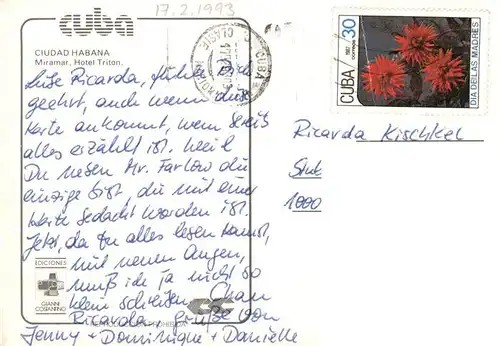 17.2.1993
cuba
CIUDAD HABANA
Miramar, Hotel Triton.
CUBA
30
correos 1987
DIA DE LAS MADRES
Liebe Ricarda, fühle dich
geehrt, auch wenn diese
Karte ankommt, wenn bereits
alles erzählt ist. weil
Du neben Mr. Farlow die
einzige bist, die mit einer
Karte bedacht worden ist.
Jetzt, da Du alles lesen kannst,
mit neuen Augen,
muß ich ja nicht so
klein schreiben. Ciao
Ricarda. Grüße von
Jenny + Dominique + Danielle
Ricarda Kischkel
1000
EDICIONES
GIANNI
COSTANTINO
PROHIBIDA